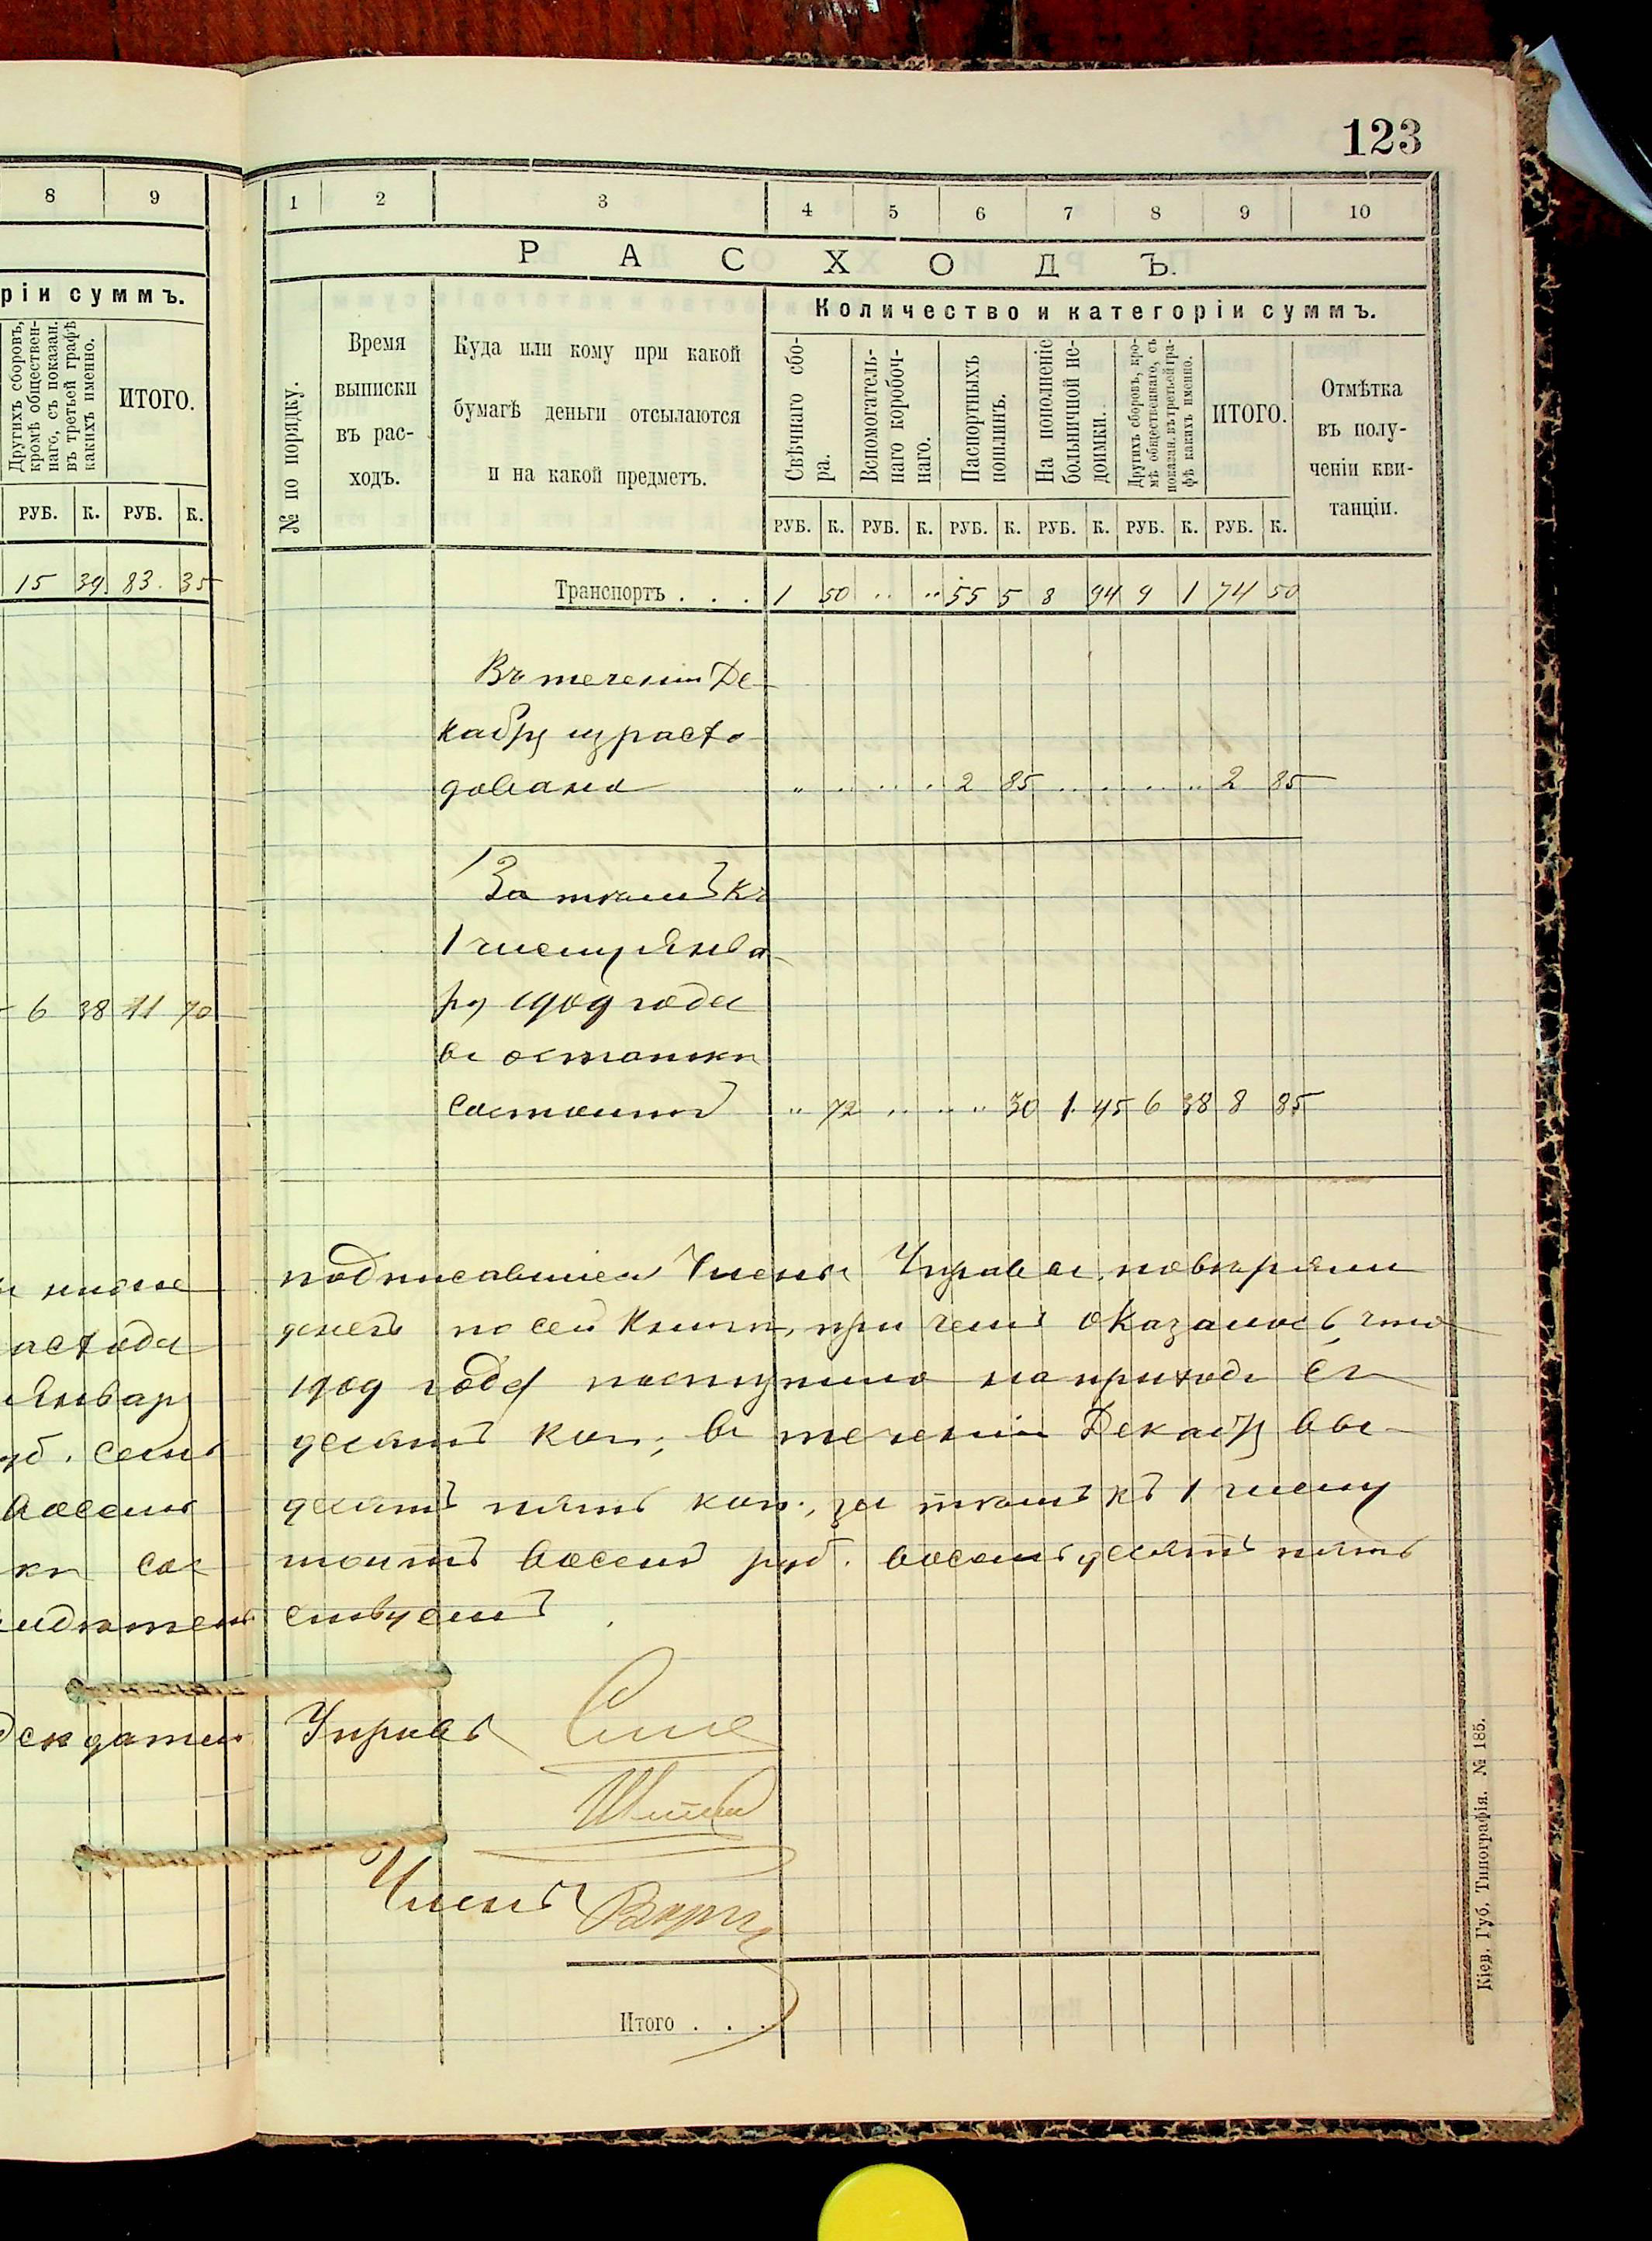 123
8 9
ріи суммъ.
Другихъ сборовъ,
кромѣ обществен-
наго, съ показан.
въ третьей графѣ
какихъ именно.
ИТОГО.
РУБ. К. РУБ. К.
15 39 83. 35
6 38 11 70
астода
Январ
руб. семь
восемь
1 2 3 4 5 6 7 8 9 10
РАСХОДЪ.
№ по порядку.
Время
выписки
въ рас-
ходъ.
Куда или кому при какой
бумагѣ деньги отсылаются
и на какой предметъ.
Количество и категоріи суммъ.
Свѣчнаго сбо-
ра.
Вспомогатель-
наго коробоч-
наго.
Паспортныхъ
пошлинъ.
На пополненіе
больничной не-
доимки.
Другихъ сборовъ, кро-
мѣ общественнаго, съ
показан. въ третьей гра-
фѣ какихъ именно.
ИТОГО.
Отмѣтка
въ полу-
ченіи кви-
танціи.
РУБ. К. РУБ. К. РУБ. К. РУБ. К. РУБ. К. РУБ. К.
Транспортъ . . . 1 50 .. .. 55 5 8 94 9 1 74 50
Въ теченіи Де-
кабря израсхо-
довано „ .. .. 2 85 .. .. 2 85
За тѣмъ къ
1 числу Янва-
ря 1909 года
въ остаткѣ
состоитъ „ 72 .. .. „ 30 1. 45 6 38 8 85
подписавшіеся Члены Управы повѣряли
денегъ по сей Книгѣ, при чемъ оказалось, что
1909 года поступило на приходъ
десятъ коп.; въ теченіи Декабря
десятъ пять коп., за тѣмъ къ 1 числу
тоитъ восемь руб. восемьдесятъ пять
ствуемъ
Управы
Члены
Итого . . .
Кіев. Губ. Типографія. № 185.